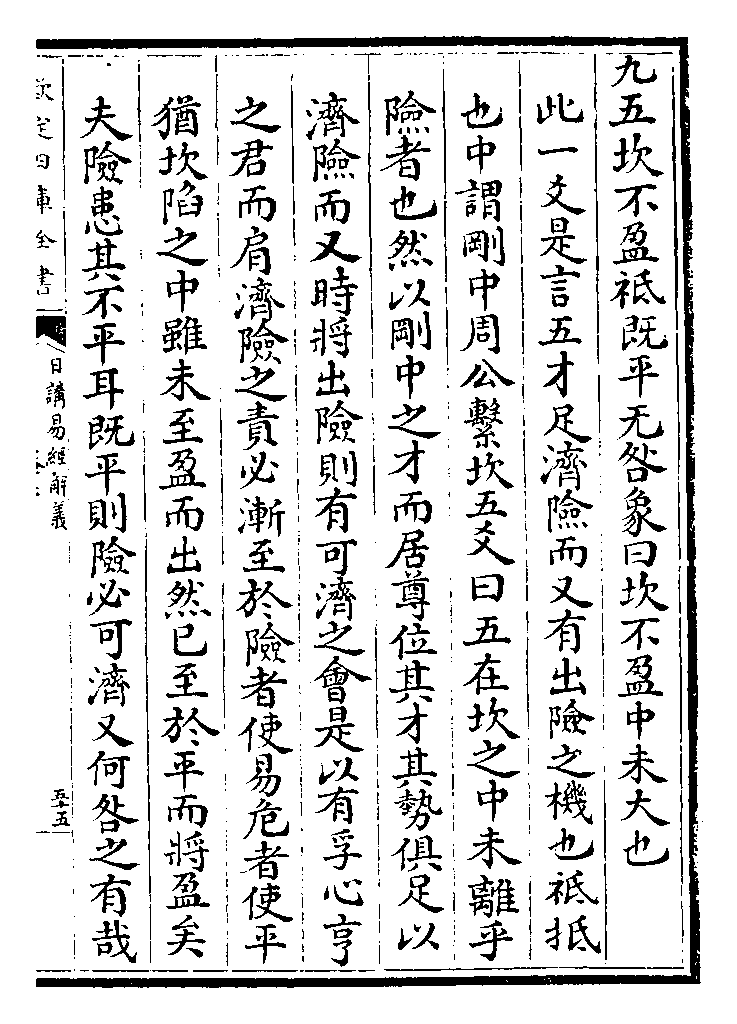 九五坎不盈祗既平无咎象曰坎不盈中未大也
此一爻是言五才足濟險而又有出險之機也祗抵
也中謂剛中周公繫坎五爻曰五在坎之中未離乎
險者也然以剛中之才而居尊位其才其勢俱足以
濟險而又時將出險則有可濟之會是以有孚心亨
之君而肩濟險之責必漸至於險者使易危者使平
猶坎陷之中雖未至盈而出然已至於平而將盈矣
夫險患其不平耳既平則險必可濟又何咎之有哉
欽定四庫全書
日講易經解義
五十五